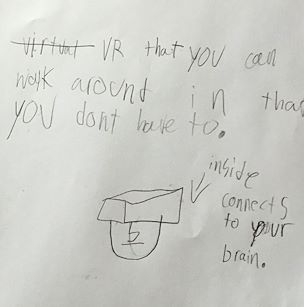 ~~virtual~~ VR that you can
walk around in that
you dont have to.
inside
connects
to your
brain.